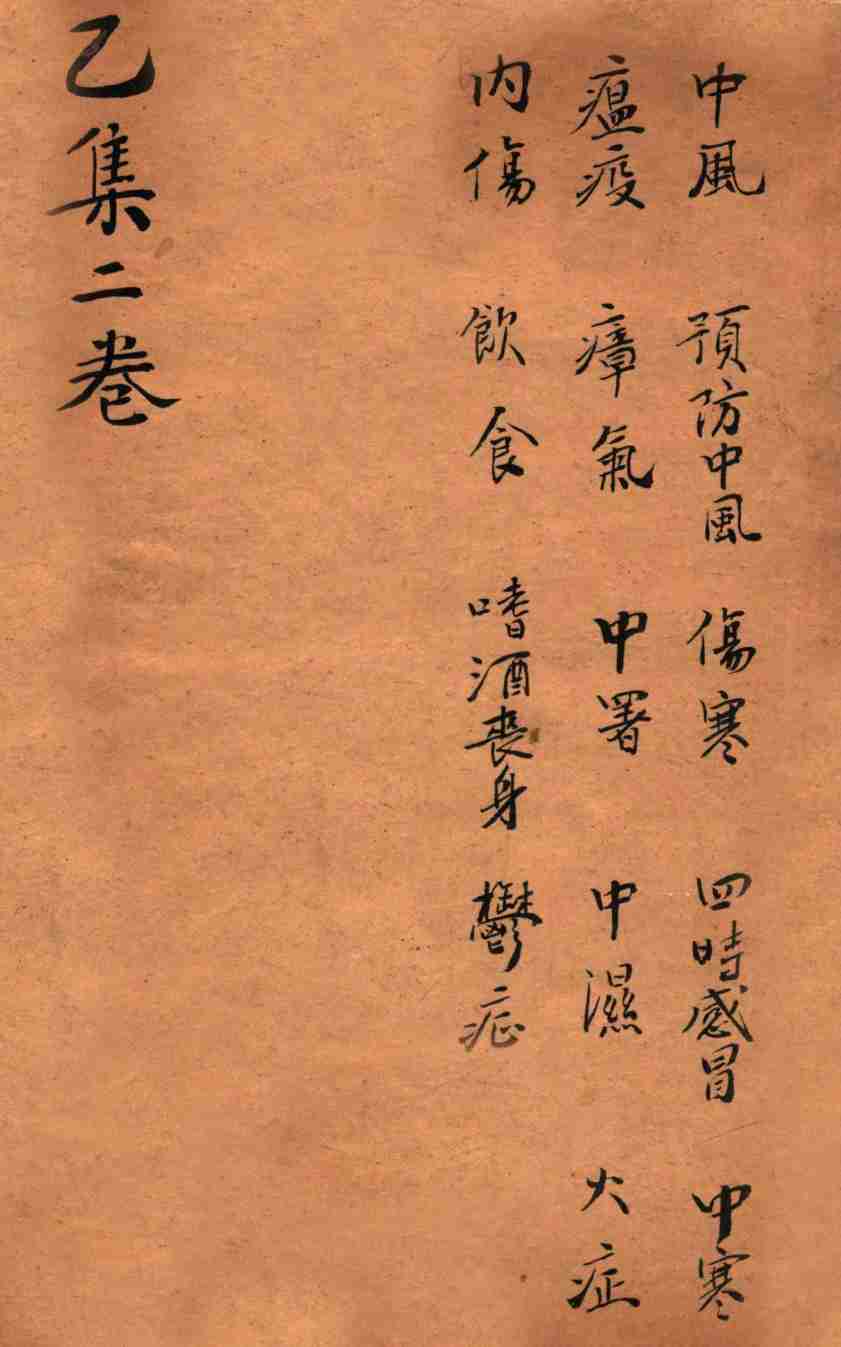 中風 預防中風 傷寒 四時感冒 中寒
瘟疫 瘴氣 中署 中濕 火症
內傷 飲食 嗜酒喪身 鬱症
乙集二卷